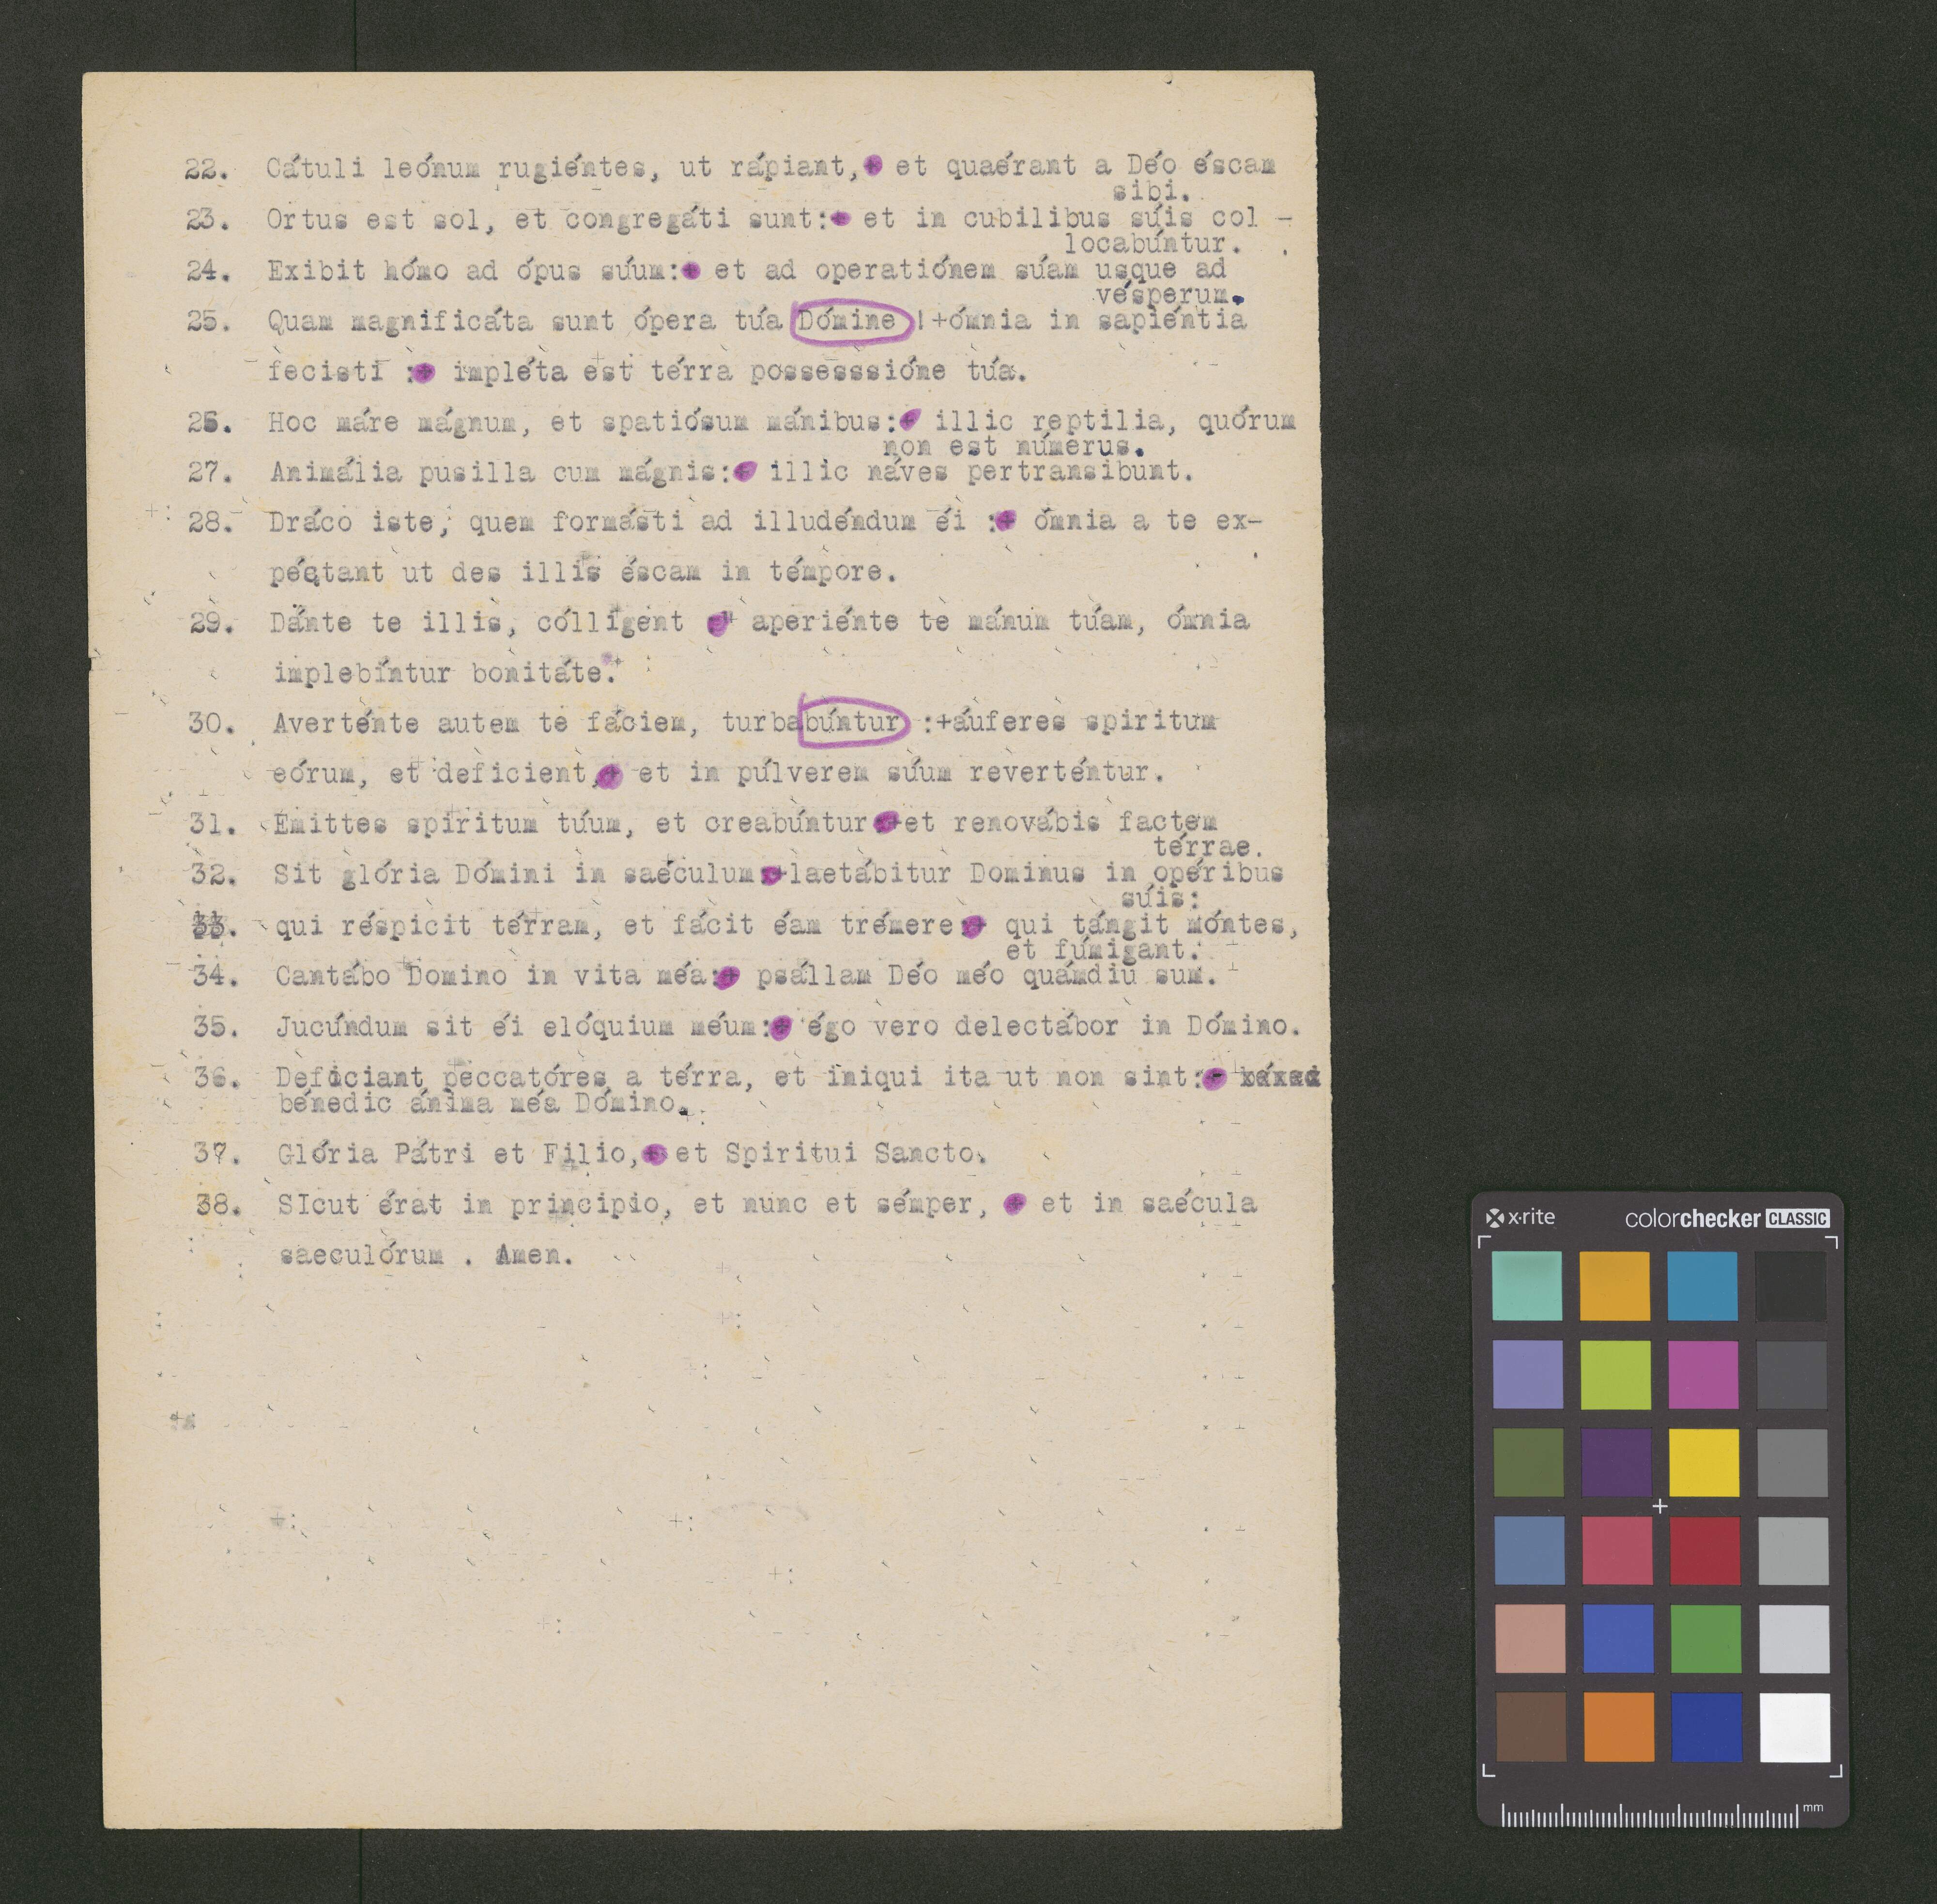 22. Cátuli leónum rugiéntes, ut rápiant,+ et quaérant a Déo éscam
sibi.
23. Ortus est sol, et congregáti sunt:+ et in cubilibus súis col -
locabúntur.
24. Exibit hómo ad ópus súum:+ et ad operatiónem súam usque ad
vésperum.
25. Quam magnificáta sunt ópera túa Dómine !+ómnia in sapiéntia
fecisti :+ impléta est térra possesssióne túa.
26. Hoc máre mágnum, et spatiósum mánibus:+ illic reptilia, quórum
non est númerus.
27. Animália pusilla cum mágnis:+ illic náves pertransibunt.
28. Dráco iste, quem formásti ad illudéndum éi :+ ómnia a te ex-
péctant ut des illis éscam in témpore.
29. Dánte te illis, cólligent :+ aperiénte te mánum túam, ómnia
implebíntur bonitáte.
30. Averténte autem te fáciem, turbabúntur :+áuferes spiritum
eórum, et deficient,+ et in púlverem súum reverténtur.
31. Emittes spiritum túum, et creabúntur:+et renovábis factem
térrae.
32. Sit glória Dómini in saéculum:+laetábitur Dominus in opéribus
súis:
33. qui réspicit térram, et fácit éam trémere:+ qui tángit móntes,
et fúmigant.
34. Cantábo Domino in vita méa:+ psállam Déo méo quámdiu sum.
35. Jucúndum sit éi elóquium méum:+ égo vero delectábor in Dómino.
36. Deficiant peccatóres a térra, et iniqui ita ut non sint:+
bénedic ánima méa Dómino.
37. Glória Pátri et Filio,+ et Spiritui Sancto.
38. SIcut érat in principio, et nunc et sémper, + et in saécula
saeculórum . Amen.
x-rite colorchecker CLASSIC
mm